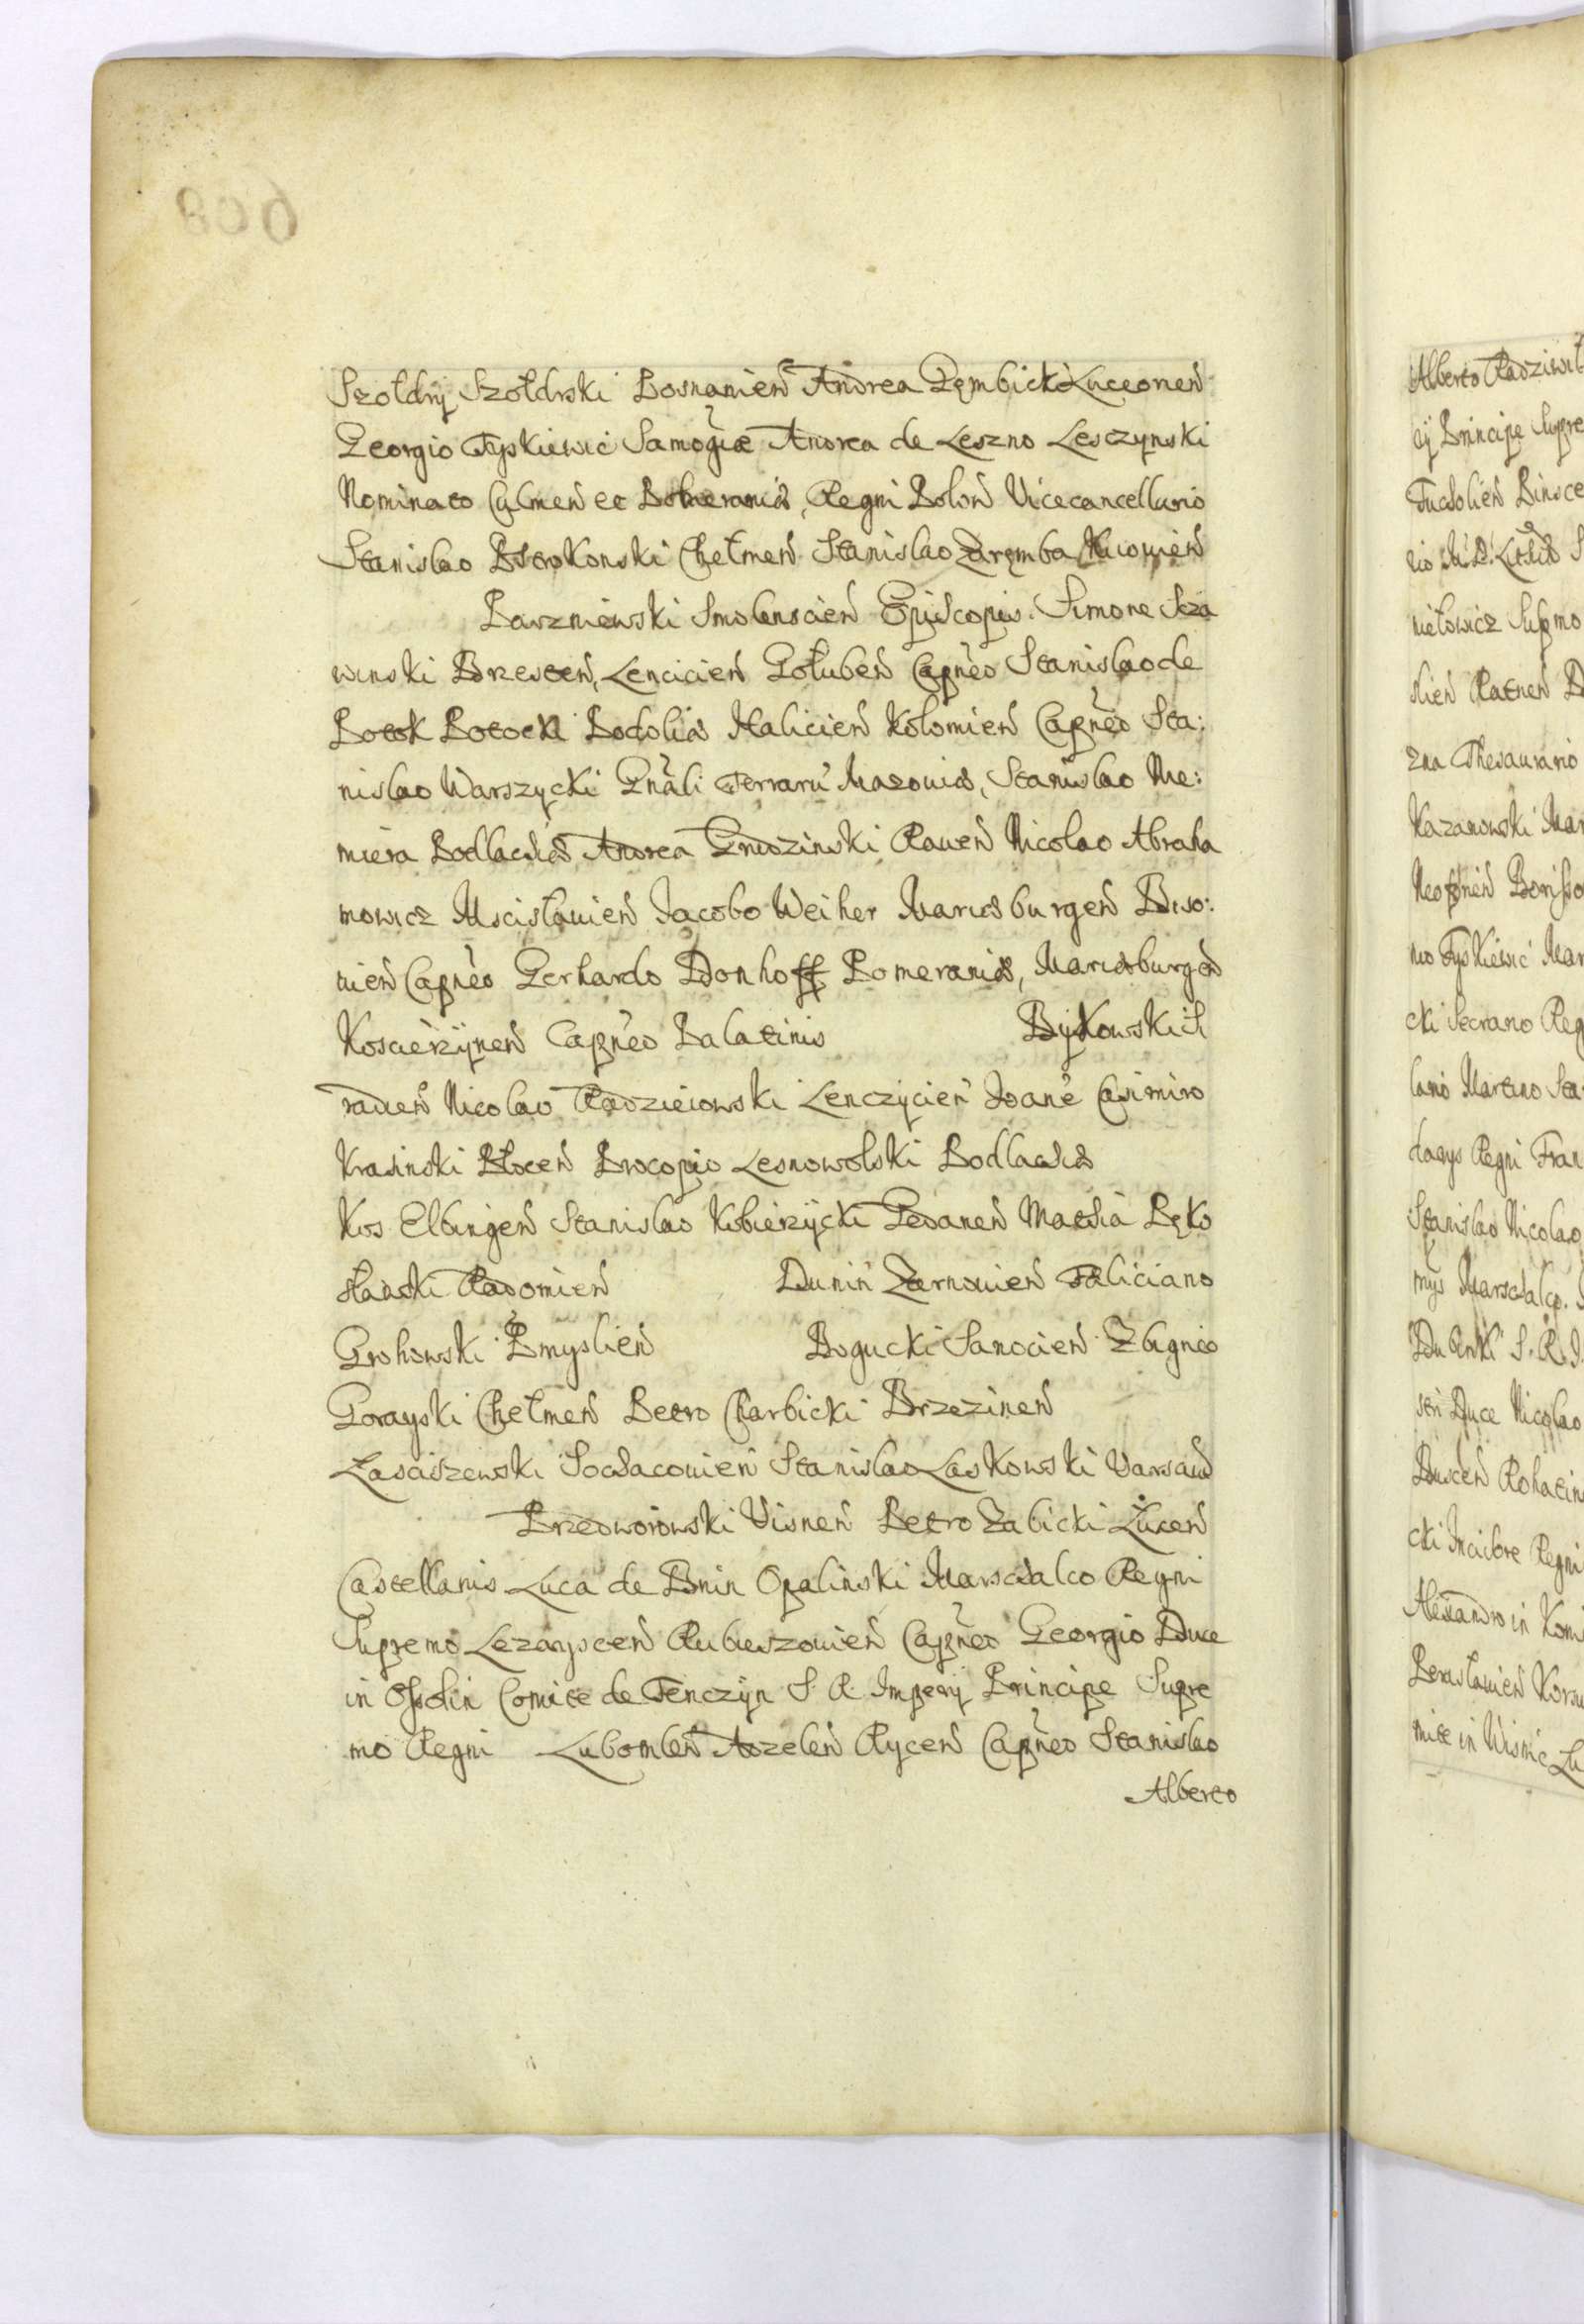 Szołdrÿ Szołdrski Posnanień Andrea Gęmbicki Luceorień
Georgio Tyskiewic Samogiæ Andrea de Leszno Lesczynski
Nominato Culmeń et Pomeraniæ, Regni Poloń Vicecancellario
Stanislao Pstrokonski Chełmeń Stanislao Zaręmba Kiiowień
Parzniewski Smolenscień Episcopis. Simone Scza
winski Brzesteń, Lencicień Gołubeń Capneo Stanislao de
Potok Potocki Podoliæ Halicień Kolomień Capneo Sta:
nislao Warszycki Gnali Terraru Mazouiæ, Stanislao Nie:
miera Podlachiæ Andrea Grudzinski Raueń Nicolao Abraha
mowicz Mscislauień Jacobo Weiher Mariæburgeń
uień Capneo Gerhardo Donhoff Pomeraniæ, Mariæburgeń
Koscierzÿneń Capneo Palatinis Bÿkowski Si
radień Nicolao Radzieiowski Lenczÿcień Joane Casimiro
Krasinski Płoceń Procopio Lesnowolski Podlachiæ
Kos Elbingeń Stanislao Kobierzÿcki Gedaneń Mathia Pęko
słauski Radomień Dunin Zarnouień Faliciano
Grohowski Pmyslień Bogucki Sanocień Zbigneo
Gorayski Chełmeń Petro Charbicki Brzezineń
Łasciszewski Sochaconień Stanislao Laskowski Varsauień
Przedworowski Visneń Petro Zabicki Łuceń
Castellanis Luca de Bnin Opalinski Marschalco Regni
Supremo Lezaysceń Rubieszouień Capneo Georgio Duce
in Ossolin Comite de Tenczÿn S. R. Imperÿ Principe Supre
mo Regni Lubomleń Adzeleń Ryceń Capneo Stanislao
Alberto
Alberto Radziwił
ÿ Principe Supre
Tucholień Pinsce
nielowicz Supmo
zna Thesaurario
Kazanowski Mar
Tyskiewic Mar
cki Secrario Reg
Martino Sta
Regni Fran
Stanislao Nicolao
Marschalco.
S. R. I.
Duce Nicolao
Busceń Rohatin
cki Incisore Regni
Alexandro in Koni
mite in Wisnic Lu